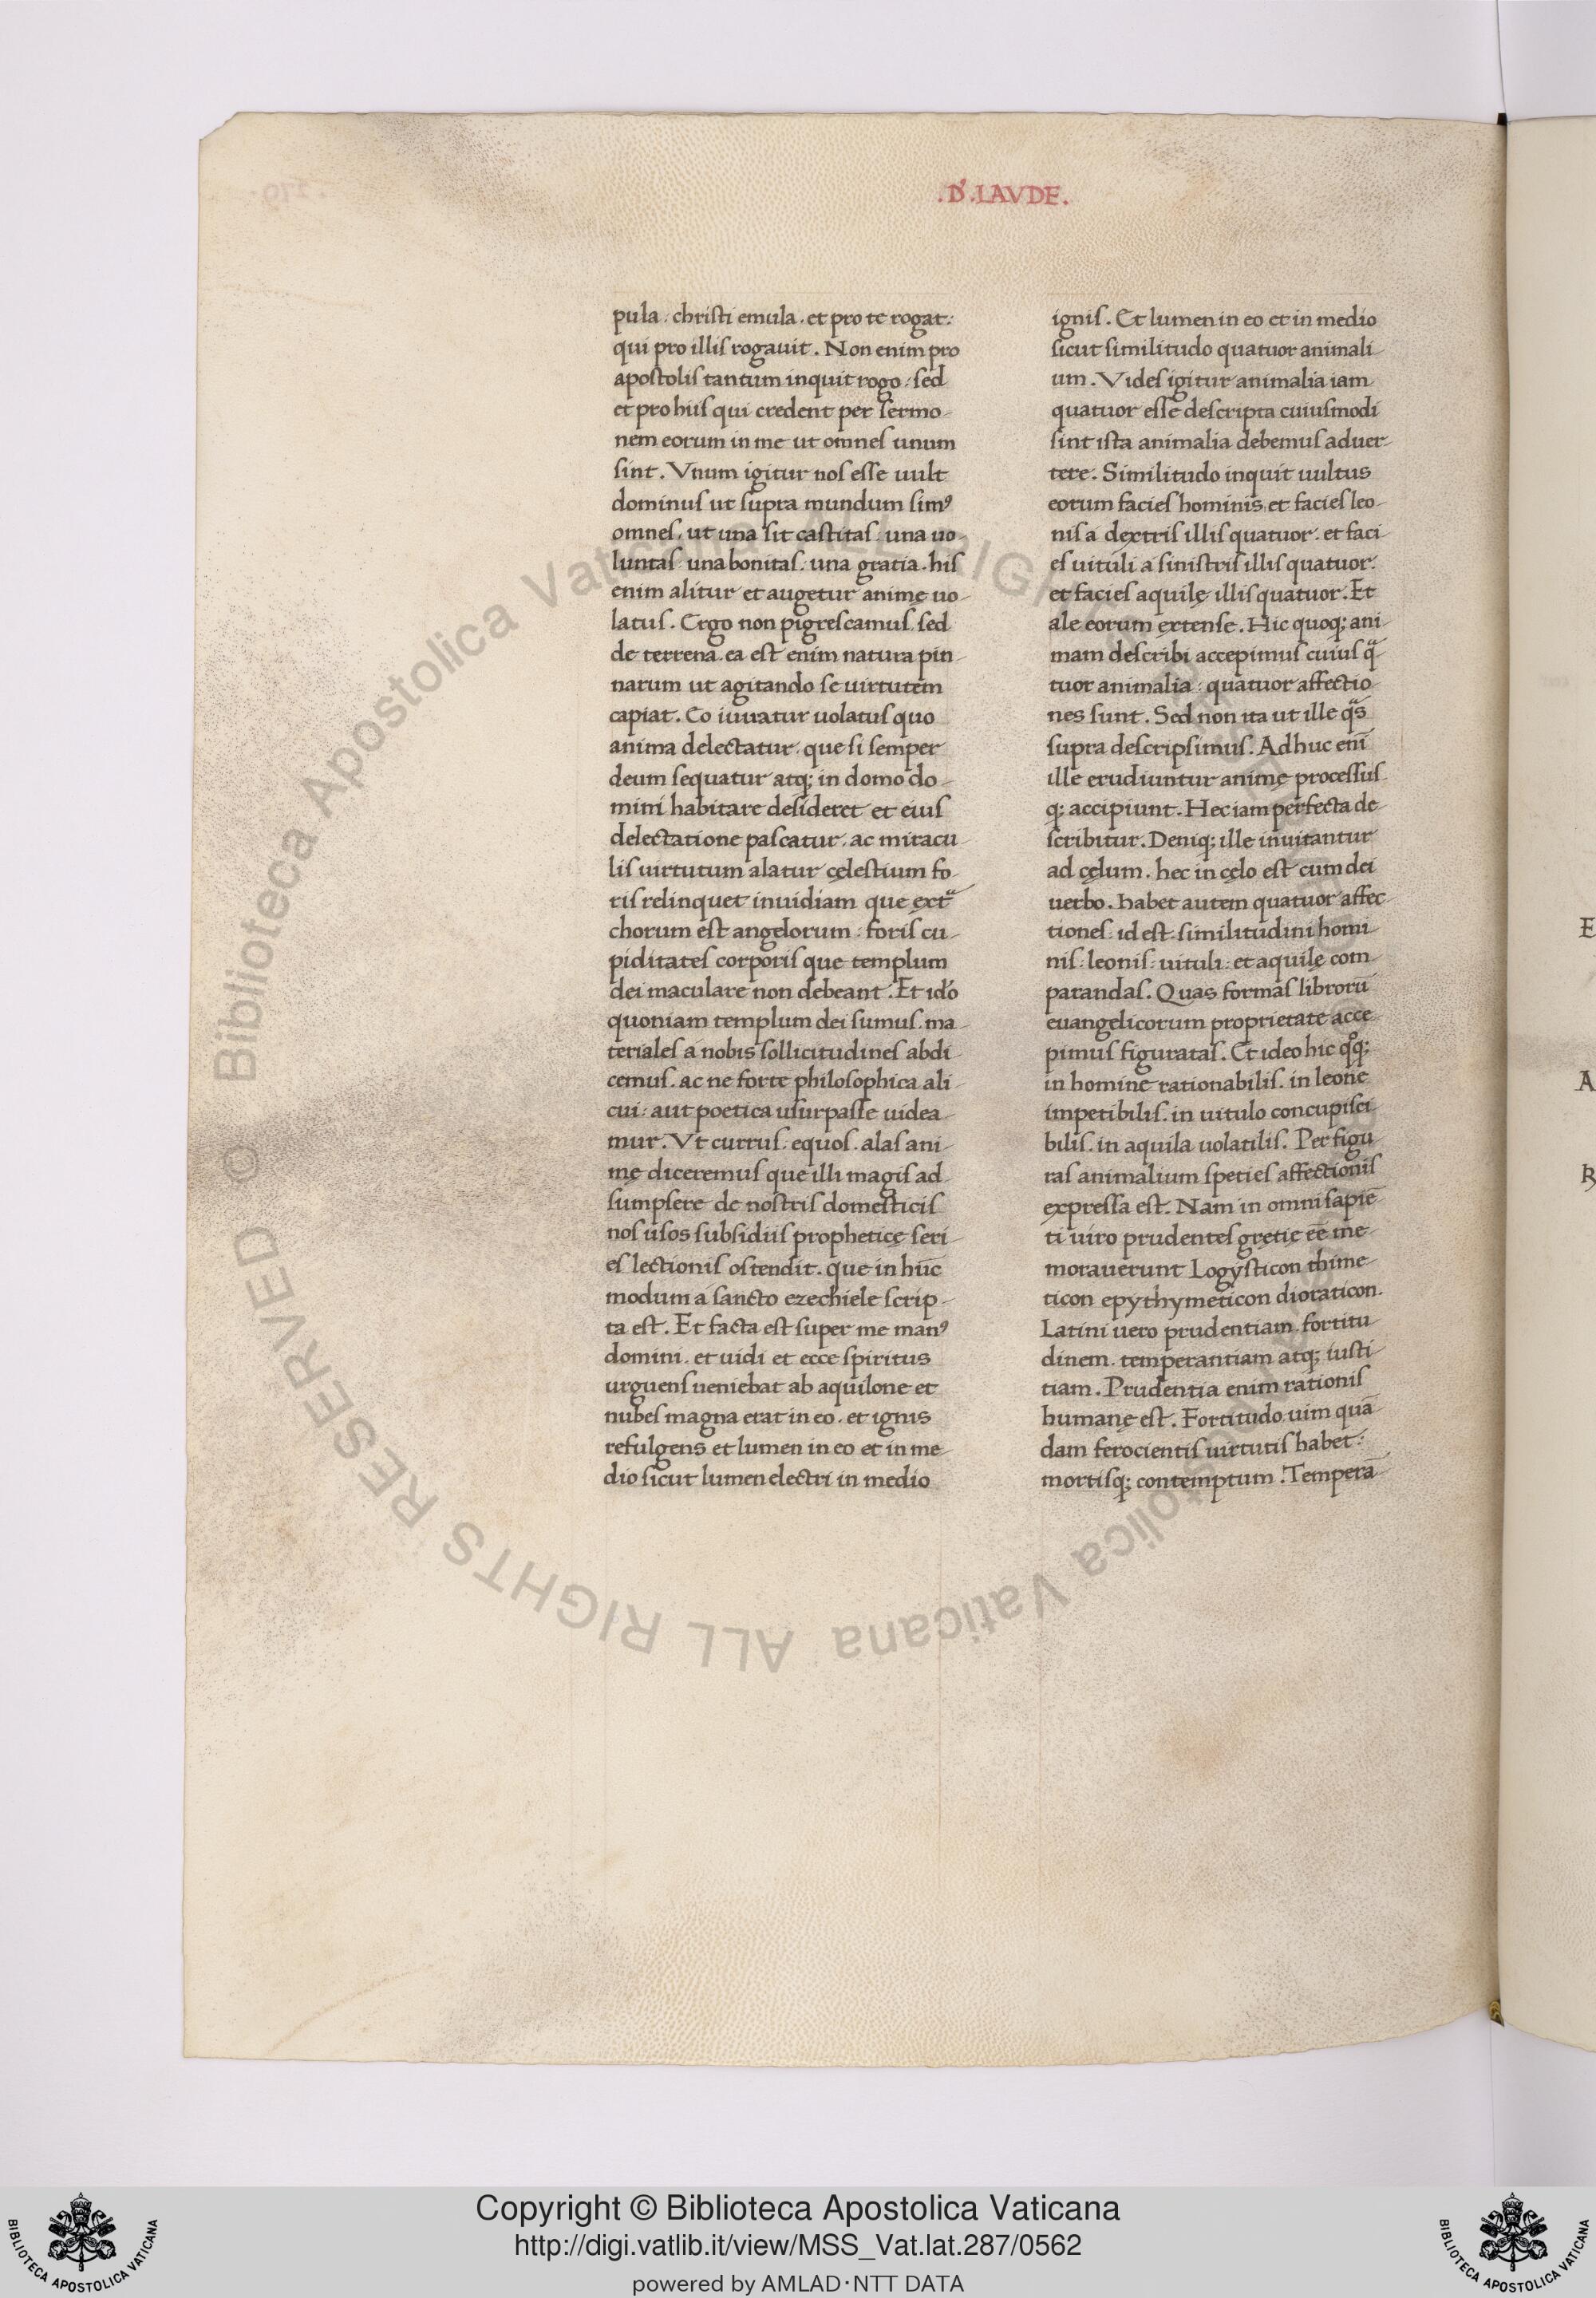 .D'.LAVDE.
pula. christi emula. et pro te rogat:
qui pro illis rogauit. Non enim pro
apostolis tantum inquit rogo: sed
et pro hiis qui credent per sermo-
nem eorum in me ut omnes unum
sint. Vnum igitur nos esse uult
dominus ut supra mundum simꝰ
omnes. ut una sit castitas. una uo-
luntas. una bonitas. una gratia. his
enim alitur et augetur animę uo-
latus. Ergo non pigrescamus sed
de terrena. ea est enim natura pin-
narum ut agitando se uirtutem
capiat. Eo iuuatur uolatus quo
anima delectatur. que si semper
deum sequatur atq; in domo do-
mini habitare desideret et eius
delectatione pascatur. ac miracu
lis uirtutum alatur cęlestium fo-
ris relinquet inuidiam que extᵃ
chorum est angelorum: foris cu-
piditates corporis que templum
dei maculare non debeant. Et ido
quoniam templum dei sumus. ma-
teriales a nobis sollicitudines abdi-
cemus. ac ne forte philosophica ali-
cui: aut poetica usurpasse uidea-
mur. Vt currus. equos. alas ani-
mę diceremus que illi magis ad-
sumpsere de nostris domesticis
nos usos subsidiis propheticę seri-
es lectionis ostendit. que in hūc
modum a sancto ezechiele scrip-
ta est. Et facta est super me manꝰ
domini. et uidi et ecce spiritus
urguens ueniebat ab aquilone et
nubes magna erat in eo. et ignis
refulgens et lumen in eo et in me-
dio sicut lumen electri in medio
ignis. Et lumen in eo et in medio
sicut similitudo quatuor animali-
um. Vides igitur animalia iam
quatuor esse descripta cuiusmodi
sint ista animalia debemus aduer-
tere. Similitudo inquit uultus
eorum facies hominis et facies leo-
nis a dextris illis quatuor. et faci-
es uituli a sinistris illis quatuor.
et facies aquilę illis quatuor. Et
ale eorum extense. Hic quoq; ani-
mam describi accepimus cuius qᵃ
tuor animalia: quatuor affectio-
nes sunt. Sed non ita ut ille qᵃs
supra descripsimus. Adhuc enī
ille erudiuntur animę processus-
q; accipiunt. Hec iam perfecta de-
scribitur. Deniq; ille inuitantur
ad cęlum. hec in cęlo est cum dei
uerbo. habet autem quatuor affec-
tiones. id est similitudini homi-
nis: leonis: uituli: et aquilę com-
parandas. Quas formas librorū
euangelicorum proprietate acce-
pimus figuratas. Et ideo hic qᵒq;
in homine rationabilis. in leone
impetibilis. in uitulo concupisci-
bilis. in aquila uolatilis. Per figu-
ras animalium species affectionis
expressa est. Nam in omni sapiē-
ti uiro prudentes gręcię eē me-
morauerunt Logysticon thime-
ticon epythymeticon dioraticon.
Latini uero prudentiam fortitu-
dinem. temperantiam atq; iusti-
tiam. Prudentia enim rationis
humanę est. Fortitudo uim quā-
dam ferocientis uirtutis habet:
mortisq; contemptum. Temperā-
E
A
Copyright © Biblioteca Apostolica Vaticana
http://digi.vatlib.it/view/MSS_Vat.lat.287/0562
powered by AMLAD·NTT DATA
BIBLIOTECA APOSTOLICA VATICANA
BIBLIOTECA APOSTOLICA VATICANA
© Biblioteca Apostolica Vaticana ALL RIGHTS RESERVED